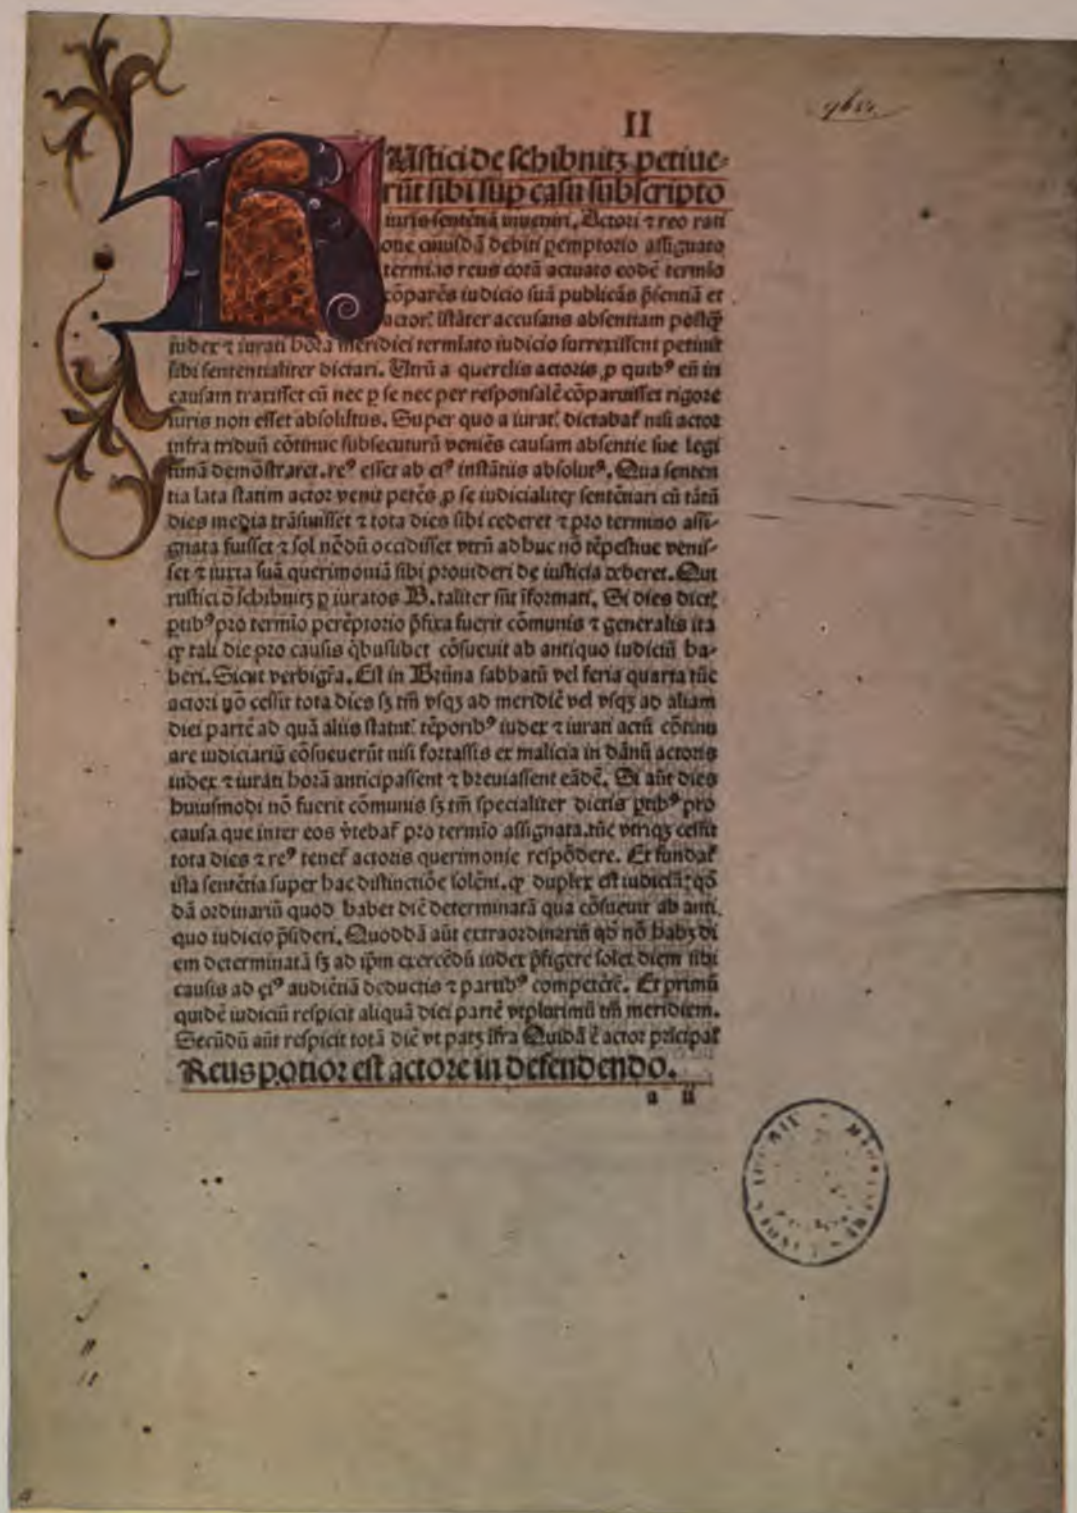 II
RUstici de schibnitz petiue⸗
rūt sibi sup casu subscripto
iuris sentētiā inueniri. Actori ⁊ reo rati
one cuiusdā debiti ꝑemptorio assignato
termino reus corā actuato eodē termīo
cōparēs iudicio suā publicās p̄sentiā et
actor⁊ istāter accusans absentiam postq̄
iudex ⁊ iurati hora meridiei termīato iudicio surrexissent petiuit
sibi sententialiter dictari. Utrū a querelis actoris ꝓ quibꝰ eū in
causam traxisset cū nec ꝑ se nec per responsalē cōparuisset rigore
iuris non esset absolutus. Super quo a iurat⁊ dictabat̄ nisi actor
infra triduū cōtinue subsecuturū veniēs causam absentie sue legi
timā demōstraret. reꝰ esset ab eiꝰ instātiis absolutꝰ. Qua senten
tia lata statim actor venit petēs ꝓ se iudicialiter sentētiari cū tātū
dies media trāsiuisset ⁊ tota dies sibi cederet ⁊ pro termino assi⸗
gnata fuisset ⁊ sol nōdū occidisset vtrū adhuc nō tēpestiue venis⸗
set ⁊ iuxta suā querimoniā sibi prouideri de iusticia deberet. Qui
rustici d̄ schibnitz ꝑ iuratos B. taliter sūt īformati. Si dies dict⁊
ꝑtibꝰ pro termīo perēptorio p̄fixa fuerit cōmunis ⁊ generalis ita
ꝙ tali die pro causis q̄buslibet cōsueuit ab antiquo iudiciū ha⸗
beri. Sicut verbigr̄a. Est in Brūna sabbatū vel feria quarta tūc
actori nō cessit tota dies sꝫ tm̄ vsqꝫ ad meridiē vel vsqꝫ ad aliam
diei partē ad quā aliis statut⁊ tēporibꝰ iudex ⁊ iurati actū cōtinu
are iudiciariū cōsueuerūt nisi fortassis ex malicia in dānū actoris
iudex ⁊ iurati horā anticipassent ⁊ breuiassent eādē. Si aūt dies
huiusmodi nō fuerit cōmunis sꝫ tm̄ specialiter dictis ꝑtibꝰ pro
causa que inter eos v̄tebat̄ pro termīo assignata. tūc vtriqꝫ cessit
tota dies ⁊ reꝰ tenet̄ actoris querimonie respōdere. Et fundat̄
ista sentētia super hac distinctiōe solēni. ꝙ duplex est iudiciū: qd̄
dā ordinariū quod habet diē determinatā qua cōsueuit ab anti
quo iudicio p̄sideri. Quoddā aūt extraordinariū qd̄ nō habꝫ di
em determinatā sꝫ ad ip̄m exercēdū iudex p̄figere solet diem sibi
causis ad eiꝰ audiētiā deductis ⁊ partibꝰ competētē. Et primū
quidē iudiciū respicit aliquā diei partē vtplurimū tm̄ meridiem.
Secūdū aūt respicit totā diē vt patꝫ īfra Quidā ē actor prīcipat̄
Reus potior est actore in defendendo.
a ii